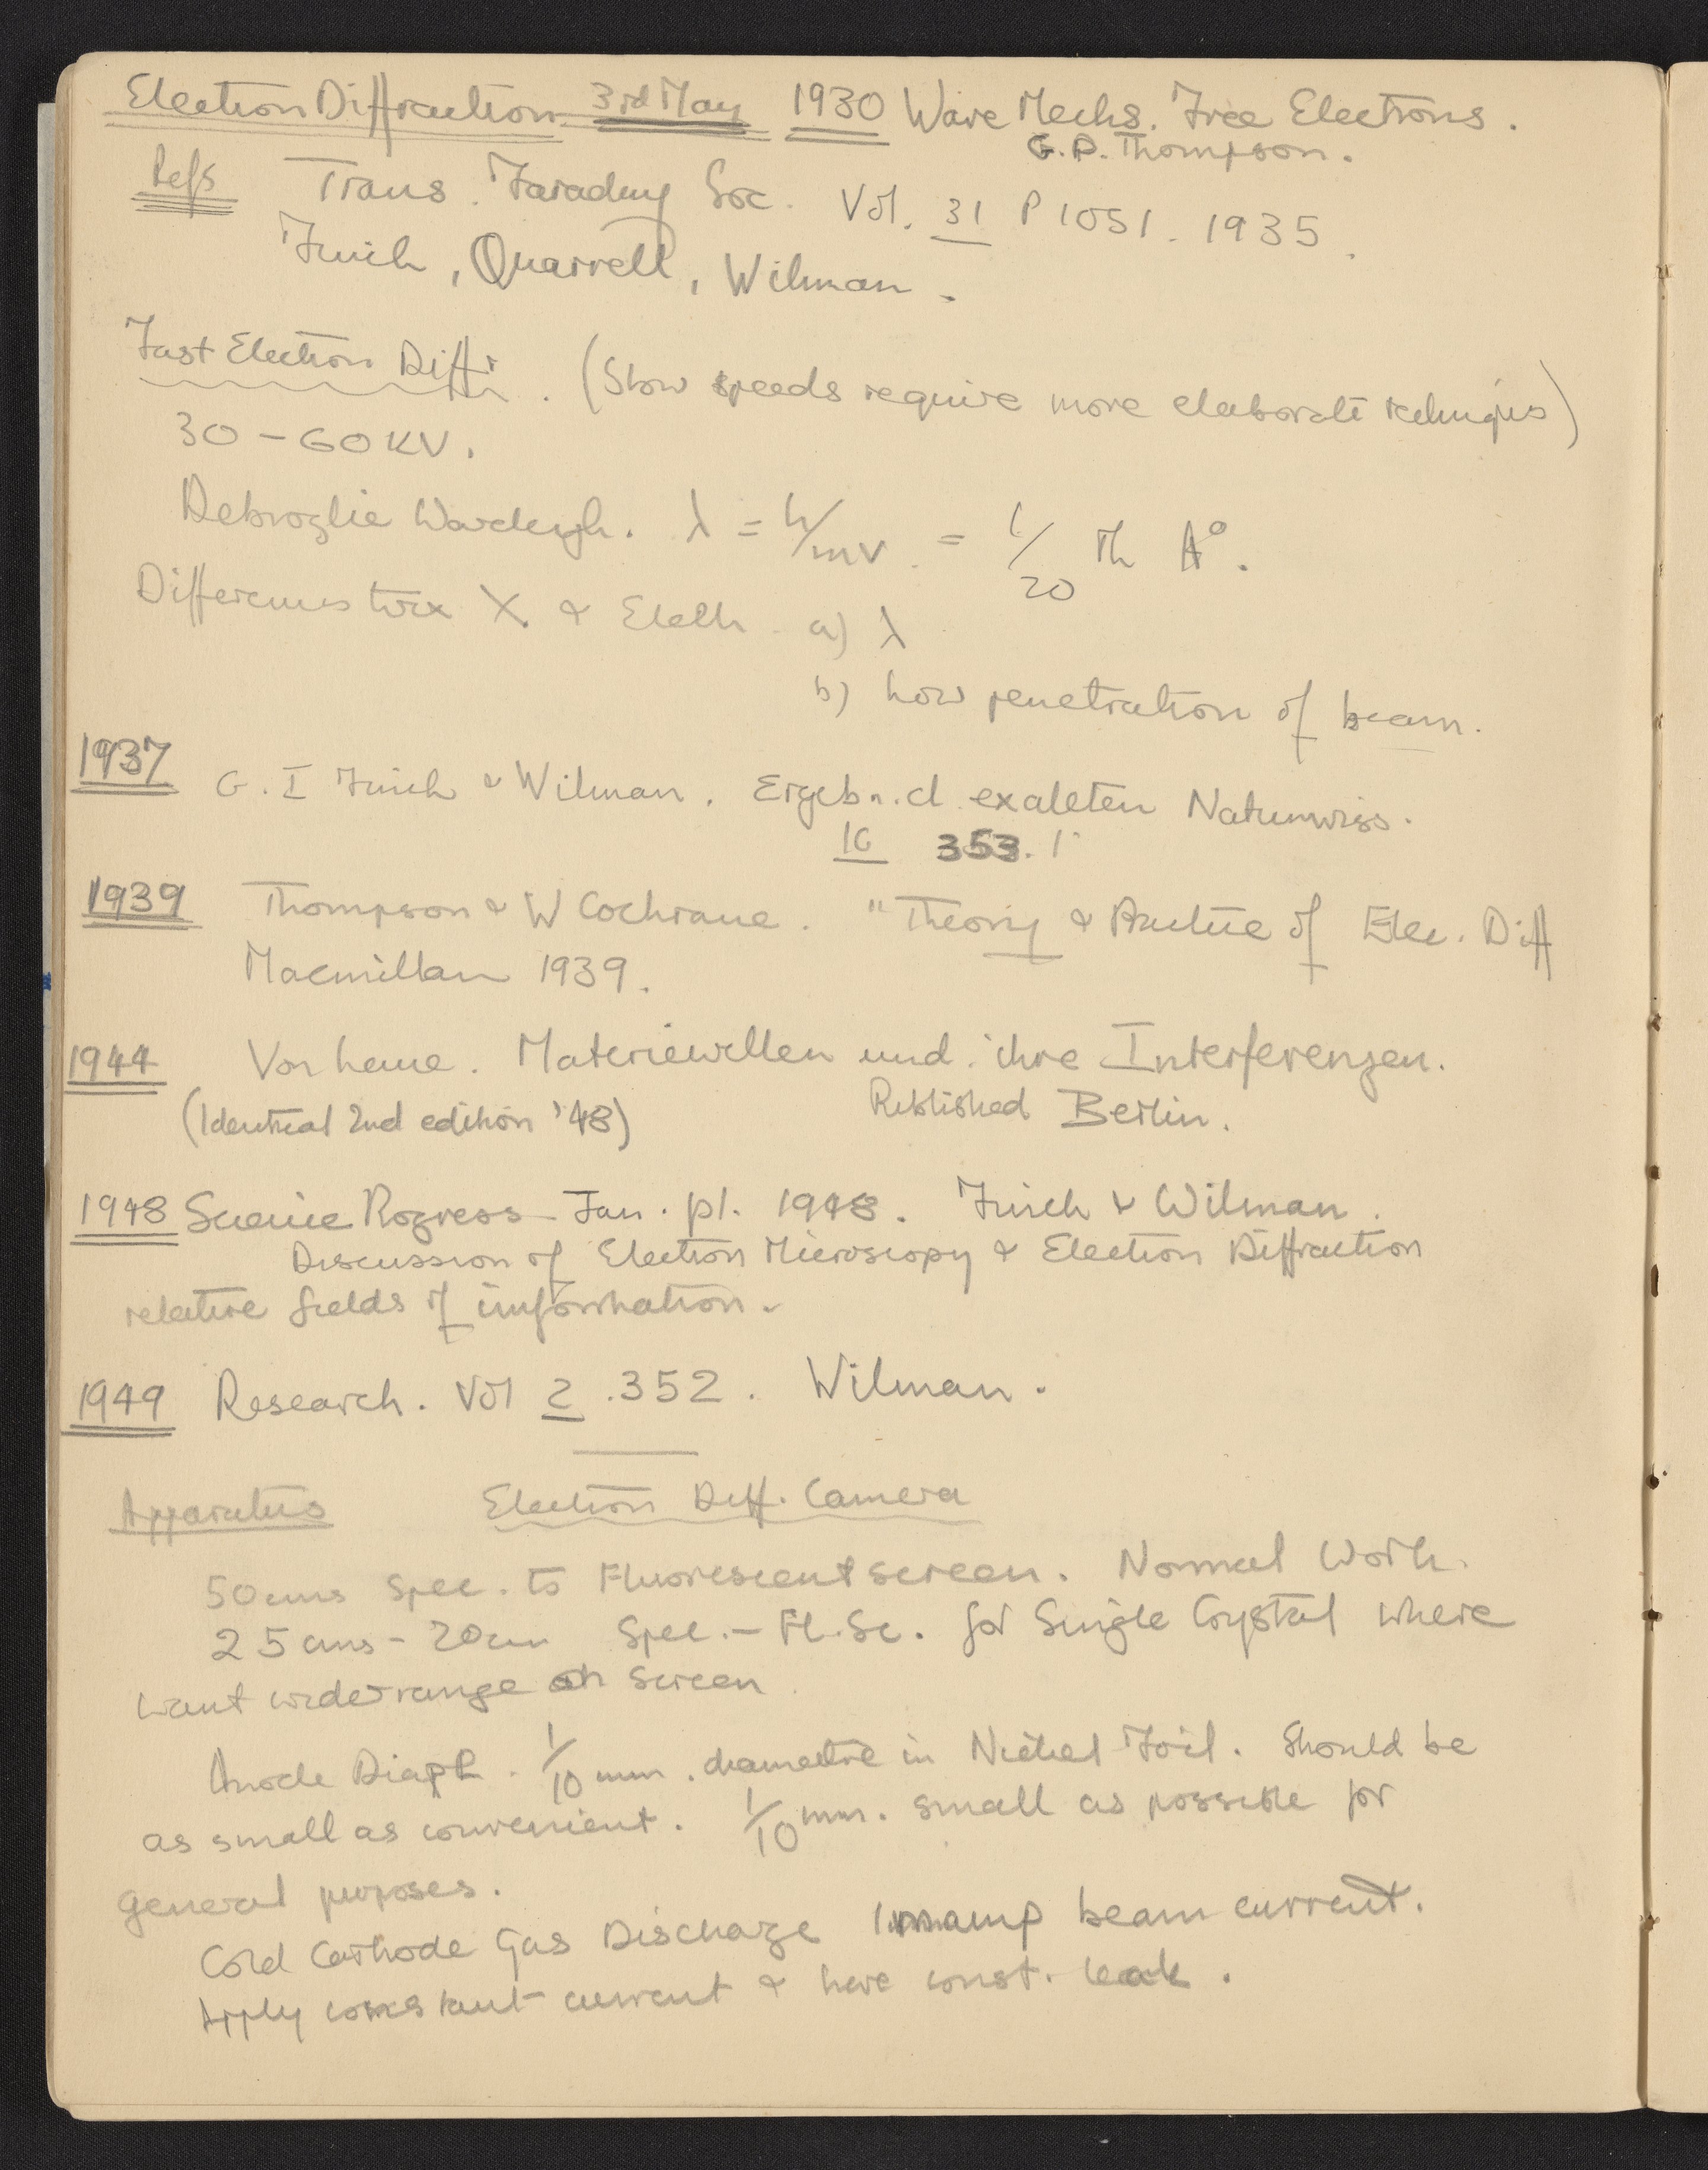 Electron Diffraction 3rd May 1930 Wave Mechs. Free Electrons.
G.P. Thompson.
Refs Trans. Faraday Soc. Vol. 31 P 1051. 1935.
Finch, Quarrell, Wilman.
Fast Electron Diffr. (Slow speeds require more elaborate techniques)
30 – 60 KV.
Debroglie Wavelength. λ = h/mv. = 1/20 th A°.
Differences betw X & Electn. a) λ
b) Low penetration of beam.
1937 G. I Finch & Wilman. Ergebn. d. exakten Naturwiss.
16 353.
1939 Thompson & W Cochrane. "Theory & Practice of Elec. Diff
Macmillan 1939.
1944 Von Laue. Materiewellen und ihre Interferenzen.
(Identical 2nd edition '48) Published Berlin.
1948 Science Progress Jan. p1. 1948. Finch & Wilman.
Discussion of Electron Microscopy & Electron Diffraction
relative fields of information.
1949 Research. Vol 2 .352. Wilman.
Apparatus Electron Diff. Camera
50cms Spec. to Fluorescent screen. Normal Work.
25cms – 20cm Spec. – Fl. Sc. for Single Crystal where
want wider range on screen
Anode Diaph. 1/10 mm. diametre in Nickel Foil. Should be
as small as convenient. 1/10 mm. small as possible for
general purposes.
Cold Cathode Gas Discharge 1 mamp beam current.
Apply constant current & have const. leak.